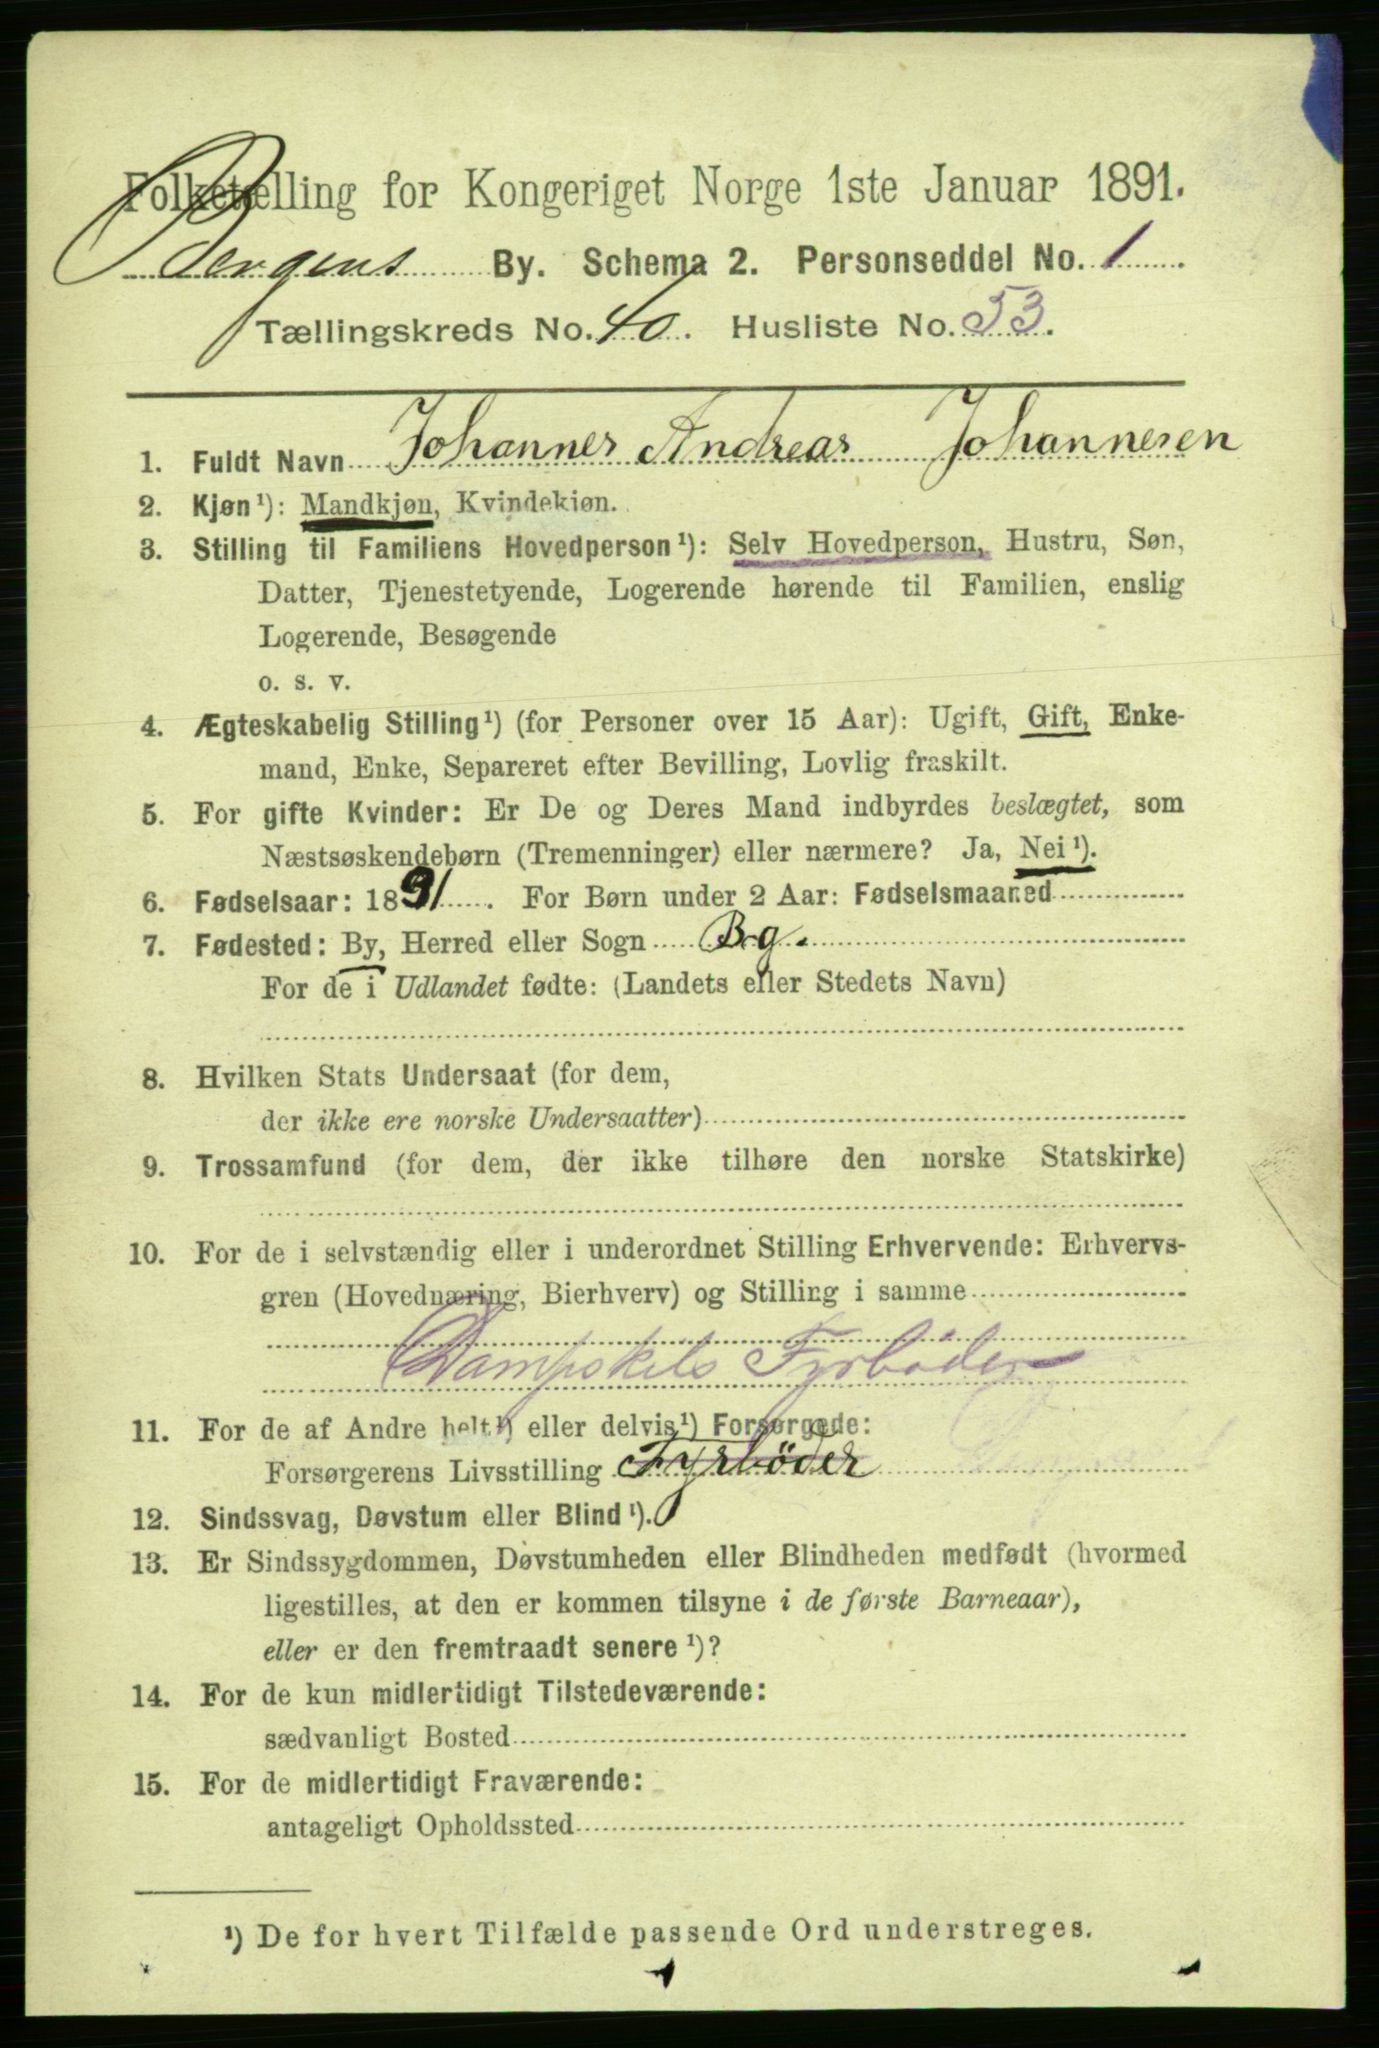 Folketælling for Kongeriget Norge 1ste Januar 1891.
Bergens By. Schema 2. Personseddel No. 1
Tællingskreds No. 40. Husliste No. 53.
1. Fuldt Navn Johannes Andreas Johannesen
2. Kjøn¹): Mandkjøn, Kvindekjøn.
3. Stilling til Familiens Hovedperson¹): Selv Hovedperson, Hustru, Søn,
Datter, Tjenestetyende, Logerende hørende til Familien, enslig
Logerende, Besøgende
o. s. v.
4. Ægteskabelig Stilling¹) (for Personer over 15 Aar): Ugift, Gift, Enke-
mand, Enke, Separeret efter Bevilling, Lovlig fraskilt.
5. For gifte Kvinder: Er De og Deres Mand indbyrdes beslægtet, som
Næstsøskendebørn (Tremenninger) eller nærmere? Ja, Nei¹).
6. Fødselsaar: 1831. For Børn under 2 Aar: Fødselsmaaned
7. Fødested: By, Herred eller Sogn Bg.
For de i Udlandet fødte: (Landets eller Stedets Navn)
8. Hvilken Stats Undersaat (for dem,
der ikke ere norske Undersaatter)
9. Trossamfund (for dem, der ikke tilhøre den norske Statskirke)
10. For de i selvstændig eller i underordnet Stilling Erhvervende: Erhvervs-
gren (Hovednæring, Bierhverv) og Stilling i samme
Dampskibs Fyrböder
11. For de af Andre helt¹) eller delvis¹) Forsørgede:
Forsørgerens Livsstilling Fyrböder
12. Sindssvag, Døvstum eller Blind¹).
13. Er Sindssygdommen, Døvstumheden eller Blindheden medfødt (hvormed
ligestilles, at den er kommen tilsyne i de første Barneaar),
eller er den fremtraadt senere¹)?
14. For de kun midlertidigt Tilstedeværende:
sædvanligt Bosted
15. For de midlertidigt Fraværende:
antageligt Opholdssted
¹) De for hvert Tilfælde passende Ord understreges.